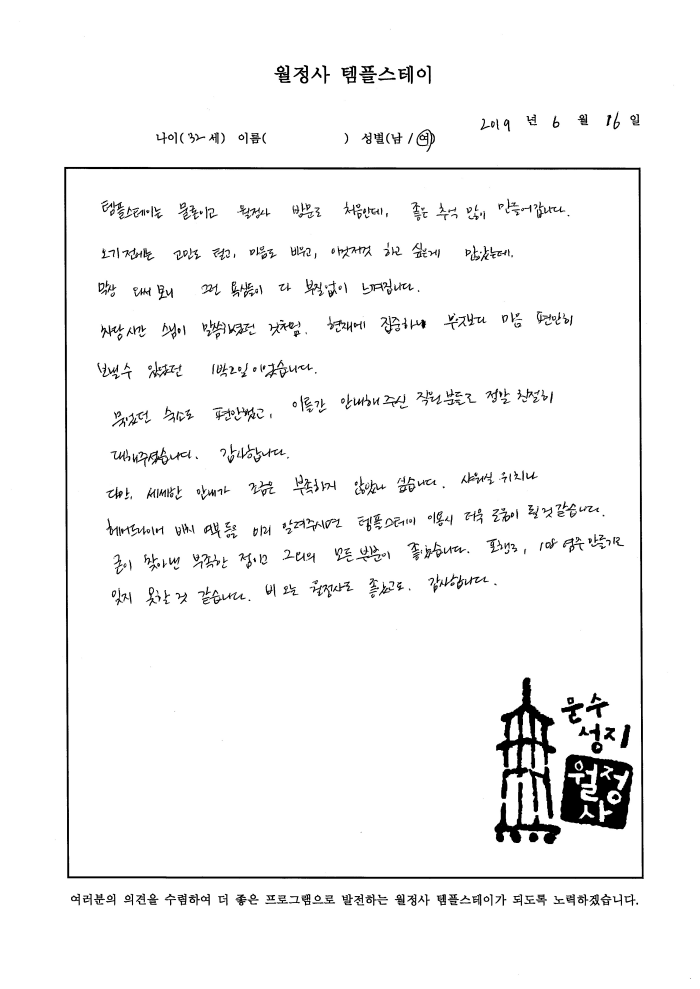 월정사 템플스테이
2019 년 6 월 16 일
나이( 32 세) 이름( ) 성별(남 / 여)
템플스테이는 물론이고 월정사 방문도 처음인데, 좋은 추억 많이 만들어갑니다.
오기 전에는 고민도 털고, 마음도 비우고, 이것저것 하고 싶은게 많았는데,
막상 와서 보니 그런 욕심들이 다 부질없이 느껴집니다.
차담시간 스님이 말씀하셨던 것처럼, 현재에 집중하며 무엇보다 마음 편안히
보낼 수 있었던 1박2일이었습니다.
묵었던 숙소도 편안했고, 이틀간 안내해주신 직원분들도 정말 친절히
대해주셨습니다. 감사합니다.
다만, 세세한 안내가 조금은 부족하지 않았나 싶습니다. 샤워실 위치나
헤어드라이어 배치 여부 등을 미리 알려주시면 템플스테이 이용시 더욱 도움이 될 것 같습니다.
굳이 찾아낸 부족한 점이고 그외의 모든 부분이 좋았습니다. 포행도, 염주 만들기도
잊지 못할 것 같습니다. 비 오는 월정사도 좋았고요. 감사합니다.
문수
성지
월정
사
여러분의 의견을 수렴하여 더 좋은 프로그램으로 발전하는 월정사 템플스테이가 되도록 노력하겠습니다.